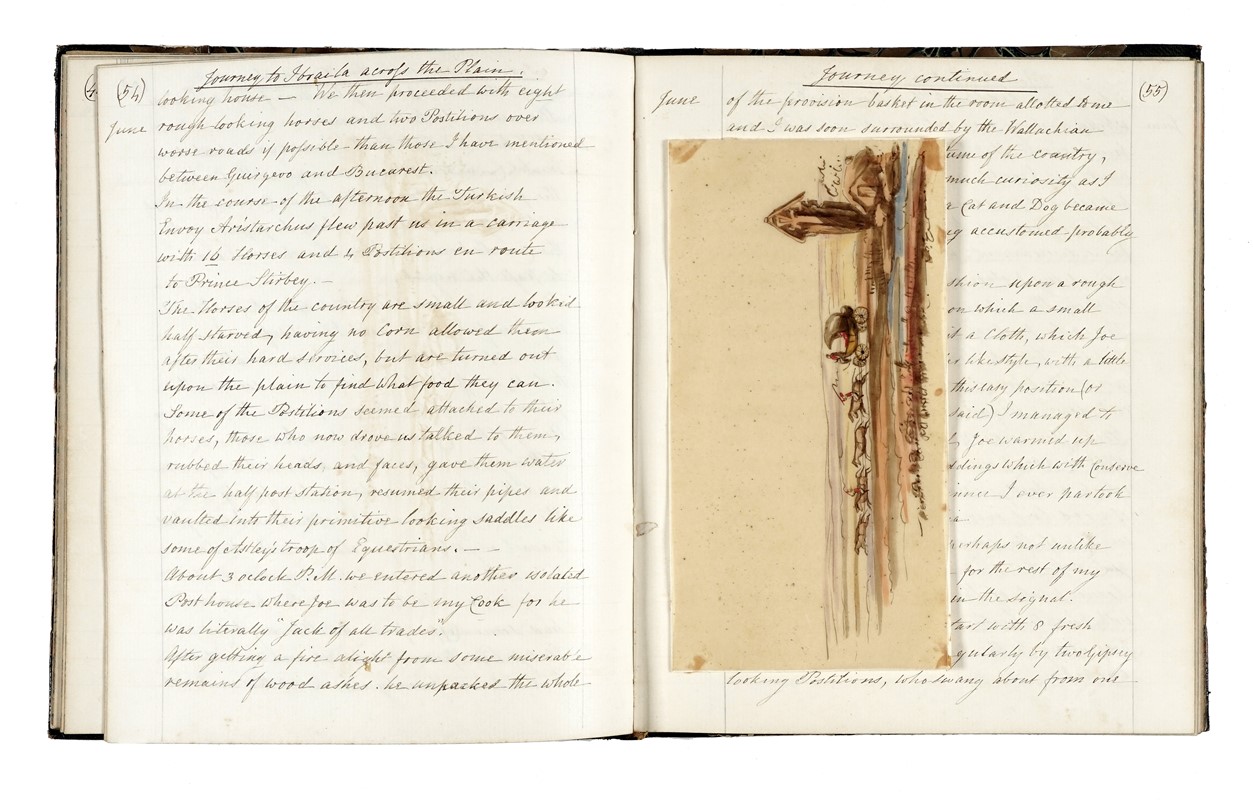 Journey to Ibraila across the Plain.
(54)
June
looking house — We then proceeded with eight
rough looking horses and two Postitions over
worse roads if possible than those I have mentioned
between Guirgevo and Bucarest.
In the course of the afternoon the Turkish
Envoy Aristarchus flew past us in a carriage
with 16 Horses and 4 Postitions en route
to Prince Stirbey. —
The Horses of the country are small and looked
half starved, having no Corn allowed them
after their hard services, but are turned out
upon the plain to find what food they can.
Some of the Postitions seemed attached to their
horses, those who now drove us talked to them,
rubbed their heads and faces, gave them water
at the half post station, resumed their pipes and
vaulted into their primitive looking saddles like
some of Astley's troop of Equestrians. — —
About 3 oclock P.M. we entered another isolated
Post house where Joe was to be my Cook for he
was literally "Jack of all trades".
After getting a fire alight from some miserable
remains of wood ashes. he unpacked the whole
Journey continued
(55)
June
of the provision basket in the room allotted to me
and I was soon surrounded by the Wallachian
ume of the country,
much curiosity as I
a Cat and Dog became
ey accustomed probably
shion upon a rough
on which a small
it a Cloth, which Joe
er like style, with a little
this easy position (or
said) I managed to
Joe warmed up
ddings which with Conserve
inner I ever partook
a
perhaps not unlike
for the rest of my
in the signal.
tart with 8 fresh
gularly by two Gipsey
looking Postitions, who swang about from one